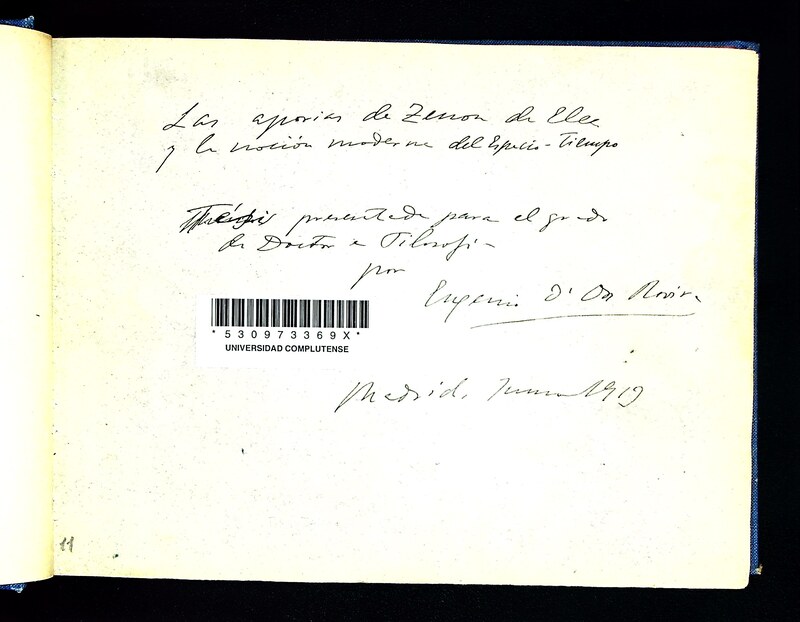 Las aporias de Zenon de Elea
y la noción moderna del Espacio-Tiempo
Tésis presentada para el grado
de Doctor en Filosofía
por
Eugenio d'Ors Rovira
*530973369X*
UNIVERSIDAD COMPLUTENSE
Madrid, 1919
11